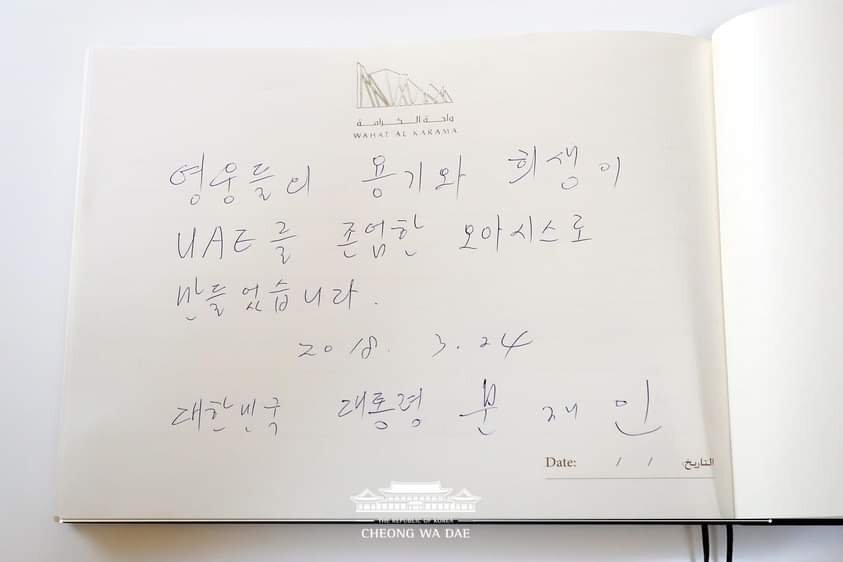 واحة الكرامة
WAHAT AL KARAMA
영웅들의 용기와 희생이
UAE를 존엄한 오아시스로
만들었습니다.
2018. 3. 24
대한민국 대통령 문재인
Date: / / التاريخ:
THE REPUBLIC OF KOREA
CHEONG WA DAE